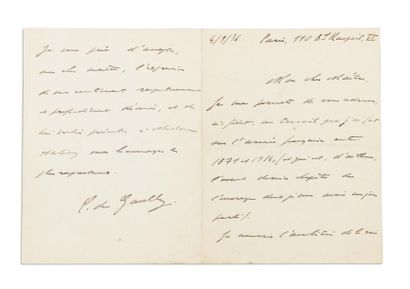 4/9/36 Paris, 110 Bd Raspail, VI
Mon cher Maître,
Je me permets de vous adresser
ci-joint, un travail que j'ai fait
sur l'armée française entre
1871 et 1914, (et qui est, d'ailleurs,
l'avant dernier chapitre de
l'ouvrage dont je vous avais
parlé).
Je nourris l'ambition de
Je vous prie d'agréer,
mon cher maître, l'expression
de mes sentiments respectueux
et profondément dévoués, et de
présenter à Madame
Halévy mes hommages les
plus respectueux.
C. de Gaulle